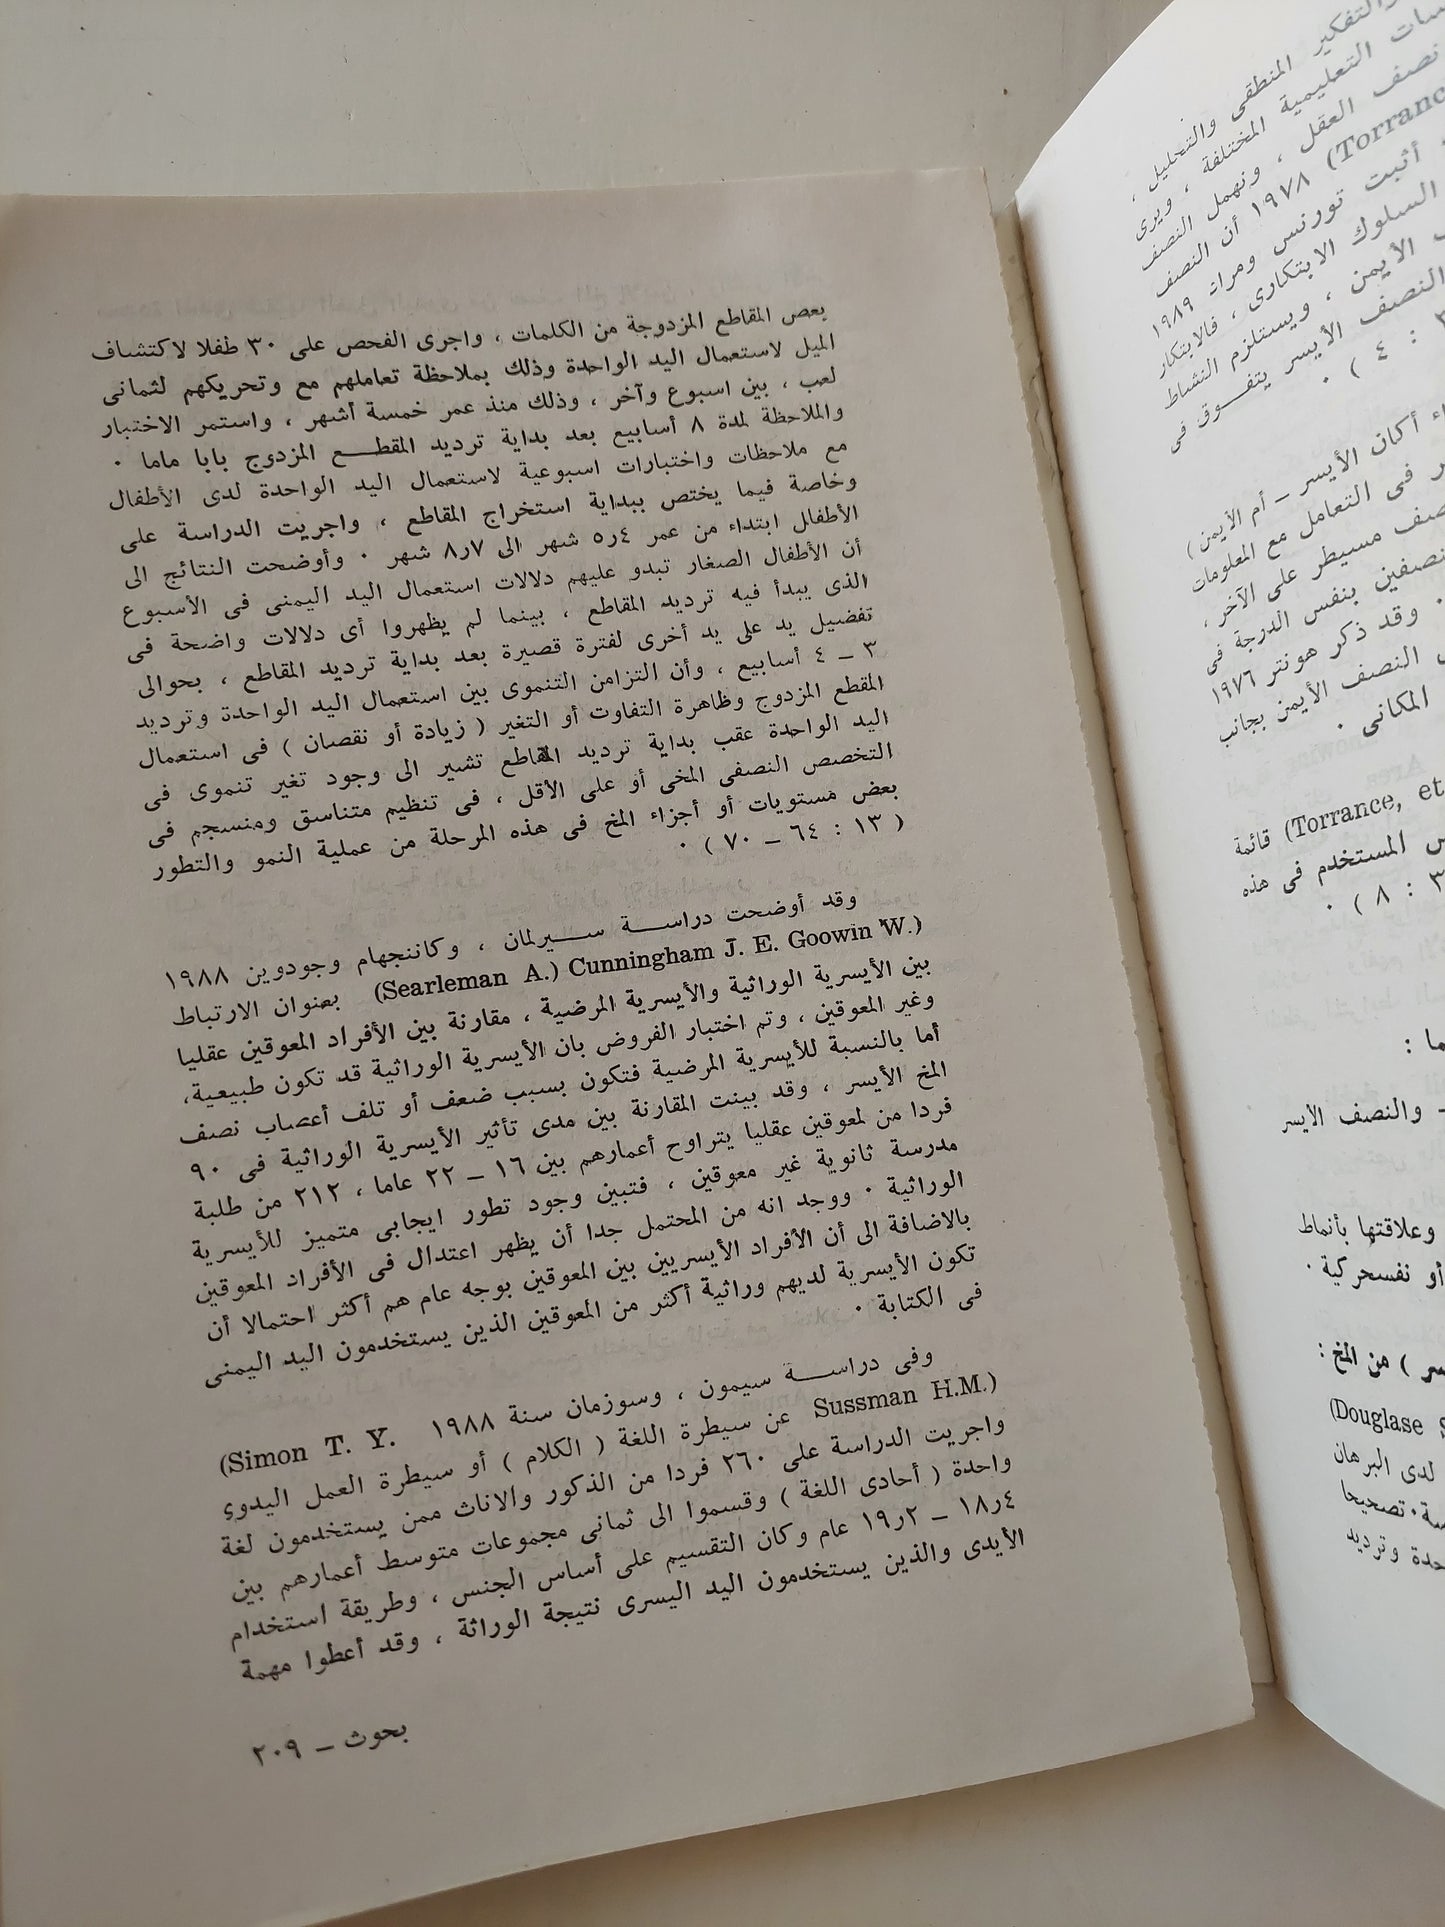 بعض المقاطع المزدوجة من الكلمات ، واجرى الفحص على ٣٠ طفلا لاكتشاف
الميل لاستعمال اليد الواحدة وذلك بملاحظة تعاملهم مع وتحريكهم لثمانى
لعب ، بين اسبوع وآخر ، وذلك منذ عمر خمسة أشهر ، واستمر الاختبار
والملاحظة لمدة ٨ أسابيع بعد بداية ترديد المقطع المزدوج بابا ماما ٠
مع ملاحظات واختبارات اسبوعية لاستعمال اليد الواحدة لدى الأطفال
وخاصة فيما يختص ببداية استخراج المقاطع ، واجريت الدراسة على
الأطفال ابتداء من عمر ٤ر٥ شهر الى ٧ر٨ شهر ٠ وأوضحت النتائج الى
أن الأطفال الصغار تبدو عليهم دلالات استعمال اليد اليمنى فى الأسبوع
الذى يبدأ فيه ترديد المقاطع ، بينما لم يظهروا أى دلالات واضحة فى
تفضيل يد على يد أخرى لفترة قصيرة بعد بداية ترديد المقاطع ، بحوالى
٣ ــ ٤ أسابيع ، وأن التزامن التنموى بين استعمال اليد الواحدة وترديد
المقطع المزدوج وظاهرة التفاوت أو التغير ( زيادة أو نقصان ) فى استعمال
اليد الواحدة عقب بداية ترديد المقاطع تشير الى وجود تغير تنموى فى
التخصص النصفى المخى أو على الأقل ، فى تنظيم متناسق ومنسجم فى
بعض مستويات أو أجزاء المخ فى هذه المرحلة من عملية النمو والتطور
( ١٣ : ٦٤ ــ ٧٠ ) ٠
وقد أوضحت دراسة سيرلمان ، وكاننجهام وجودوين ١٩٨٨
(Searleman A.) Cunningham J. E. Goowin W.) بعنوان الارتباط
بين الأيسرية الوراثية والأيسرية المرضية ، مقارنة بين الأفراد المعوقين عقليا
وغير المعوقين ، وتم اختبار الفروض بان الأيسرية الوراثية قد تكون طبيعية،
أما بالنسبة للأيسرية المرضية فتكون بسبب ضعف أو تلف أعصاب نصف
المخ الأيسر ، وقد بينت المقارنة بين مدى تأثير الأيسرية الوراثية فى ٩٠
فردا من لمعوقين عقليا يتراوح أعمارهم بين ١٦ ــ ٢٢ عاما ، ٢١٢ من طلبة
مدرسة ثانوية غير معوقين ، فتبين وجود تطور ايجابى متميز للأيسرية
الوراثية ٠ ووجد انه من المحتمل جدا أن يظهر اعتدال فى الأفراد المعوقين
بالاضافة الى أن الأفراد الأيسريين بين المعوقين بوجه عام هم أكثر احتمالا أن
تكون الأيسرية لديهم وراثية أكثر من المعوقين الذين يستخدمون اليد اليمنى
فى الكتابة ٠
وفى دراسة سيمون ، وسوزمان سنة ١٩٨٨ (Simon T. Y.
Sussman H.M.) عن سيطرة اللغة ( الكلام ) أو سيطرة العمل اليدوى
واجريت الدراسة على ٢٦٠ فردا من الذكور والاناث ممن يستخدمون لغة
واحدة ( أحادى اللغة ) وقسموا الى ثمانى مجموعات متوسط أعمارهم بين
٤ر١٨ ــ ٢ر١٩ عام وكان التقسيم على أساس الجنس ، وطريقة استخدام
الأيدى والذين يستخدمون اليد اليسرى نتيجة الوراثة ، وقد أعطوا مهمة
بحوث ــ ٢٠٩
والتفكير المنطقى والتحليل ،
التعليمية المختلفة ، ويرى
نصف العقل ، ونهمل النصف
(Torranc ١٩٧٨ أن النصف
أثبت تورنس ومراد ١٩٨٩
السلوك الابتكارى ، فالابتكار
الأيمن ، ويستلزم النشاط
النصف الأيسر يتفوق فى
: ٤ ) ٠
أكان الأيسر ــ أم الأيمن )
فى التعامل مع المعلومات
مسيطر على الآخر ،
بنفس الدرجة فى
٠ وقد ذكر هونتر ١٩٧٦
النصف الأيمن بجانب
المكانى ٠
(Torrance, et قائمة
المستخدم فى هذه
٣ : ٨ ) ٠
ــ والنصف الأيسر
وعلاقتها بأنماط
أو نفسحركية ٠
) من المخ :
(Douglase
لدى البرهان
٠ تصحيحا
وترديد